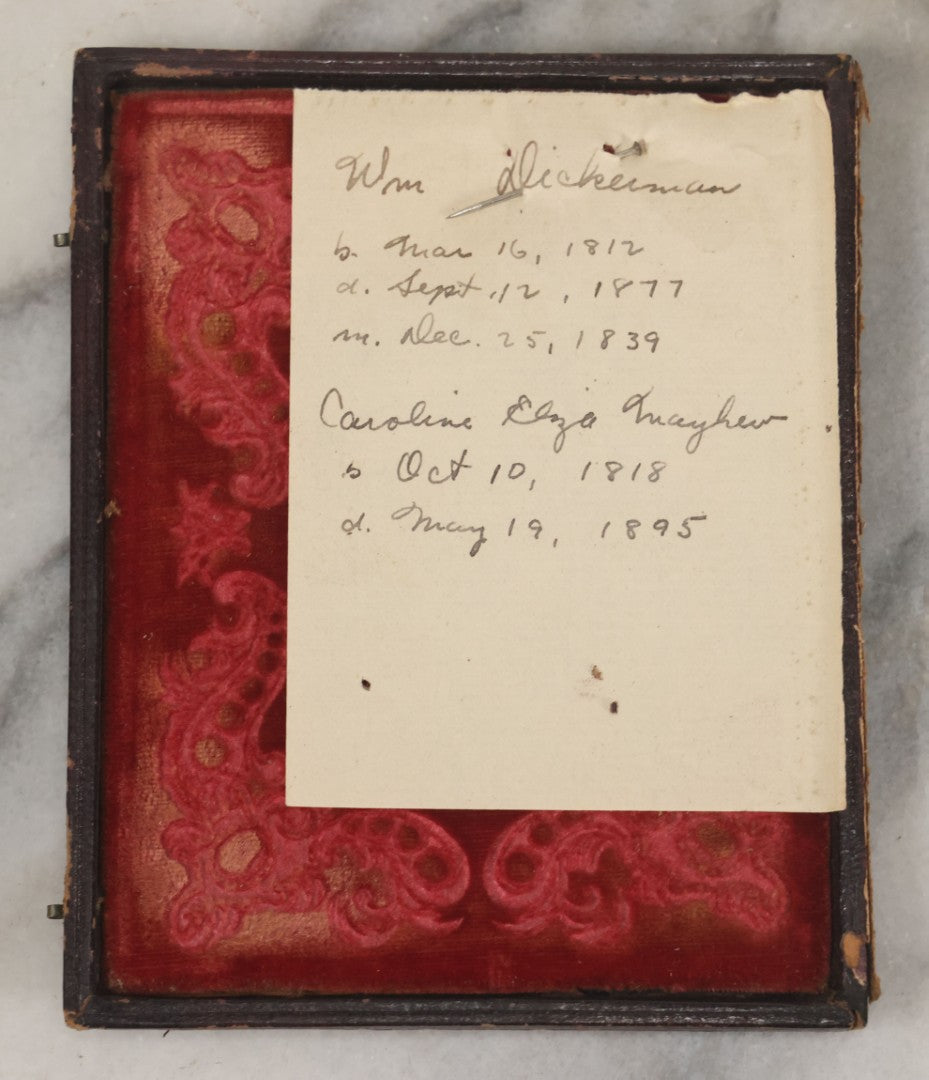 Wm Dickerman
b. Mar 16, 1812
d. Sept. 12, 1877
m. Dec. 25, 1839
Caroline Elza Mayhew
b Oct 10, 1818
d. May 19, 1895